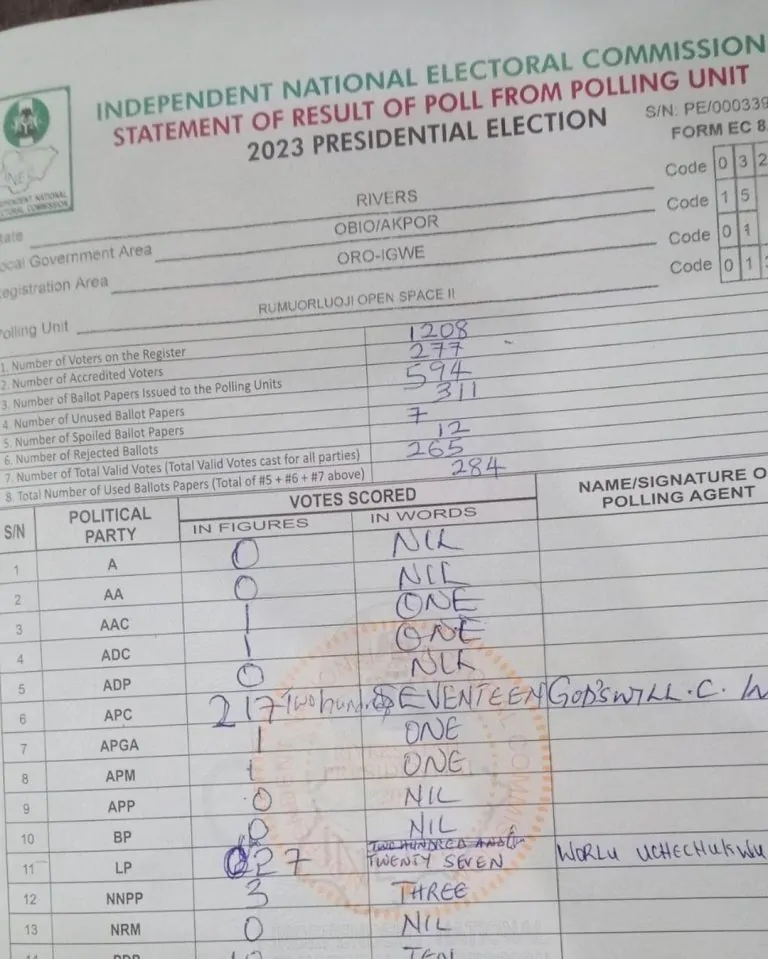 INDEPENDENT NATIONAL ELECTORAL COMMISSION
STATEMENT OF RESULT OF POLL FROM POLLING UNIT
2023 PRESIDENTIAL ELECTION
S/N: PE/000339
FORM EC 8
State RIVERS Code 0 3 2
Local Government Area OBIO/AKPOR Code 1 5
Registration Area ORO-IGWE Code 0 1
Polling Unit RUMUORLUOJI OPEN SPACE II Code 0 1
1. Number of Voters on the Register 1208
2. Number of Accredited Voters 277
3. Number of Ballot Papers Issued to the Polling Units 594
4. Number of Unused Ballot Papers 311
5. Number of Spoiled Ballot Papers 7
6. Number of Rejected Ballots 12
7. Number of Total Valid Votes (Total Valid Votes cast for all parties) 265
8. Total Number of Used Ballots Papers (Total of #5 + #6 + #7 above) 284
S/N POLITICAL PARTY VOTES SCORED NAME/SIGNATURE O
POLLING AGENT
IN FIGURES IN WORDS
1 A 0 NIL
2 AA 0 NIL
3 AAC 1 ONE
4 ADC 1 ONE
5 ADP 0 NIL
6 APC 217 Two hundred SEVENTEEN GOD'SWILL.C.
7 APGA 1 ONE
8 APM 1 ONE
9 APP 0 NIL
10 BP 0 NIL
TWO HUNDRED AND
11 LP 27 TWENTY SEVEN WORLU UCHECHUKWU
12 NNPP 3 THREE
13 NRM 0 NIL
TEN